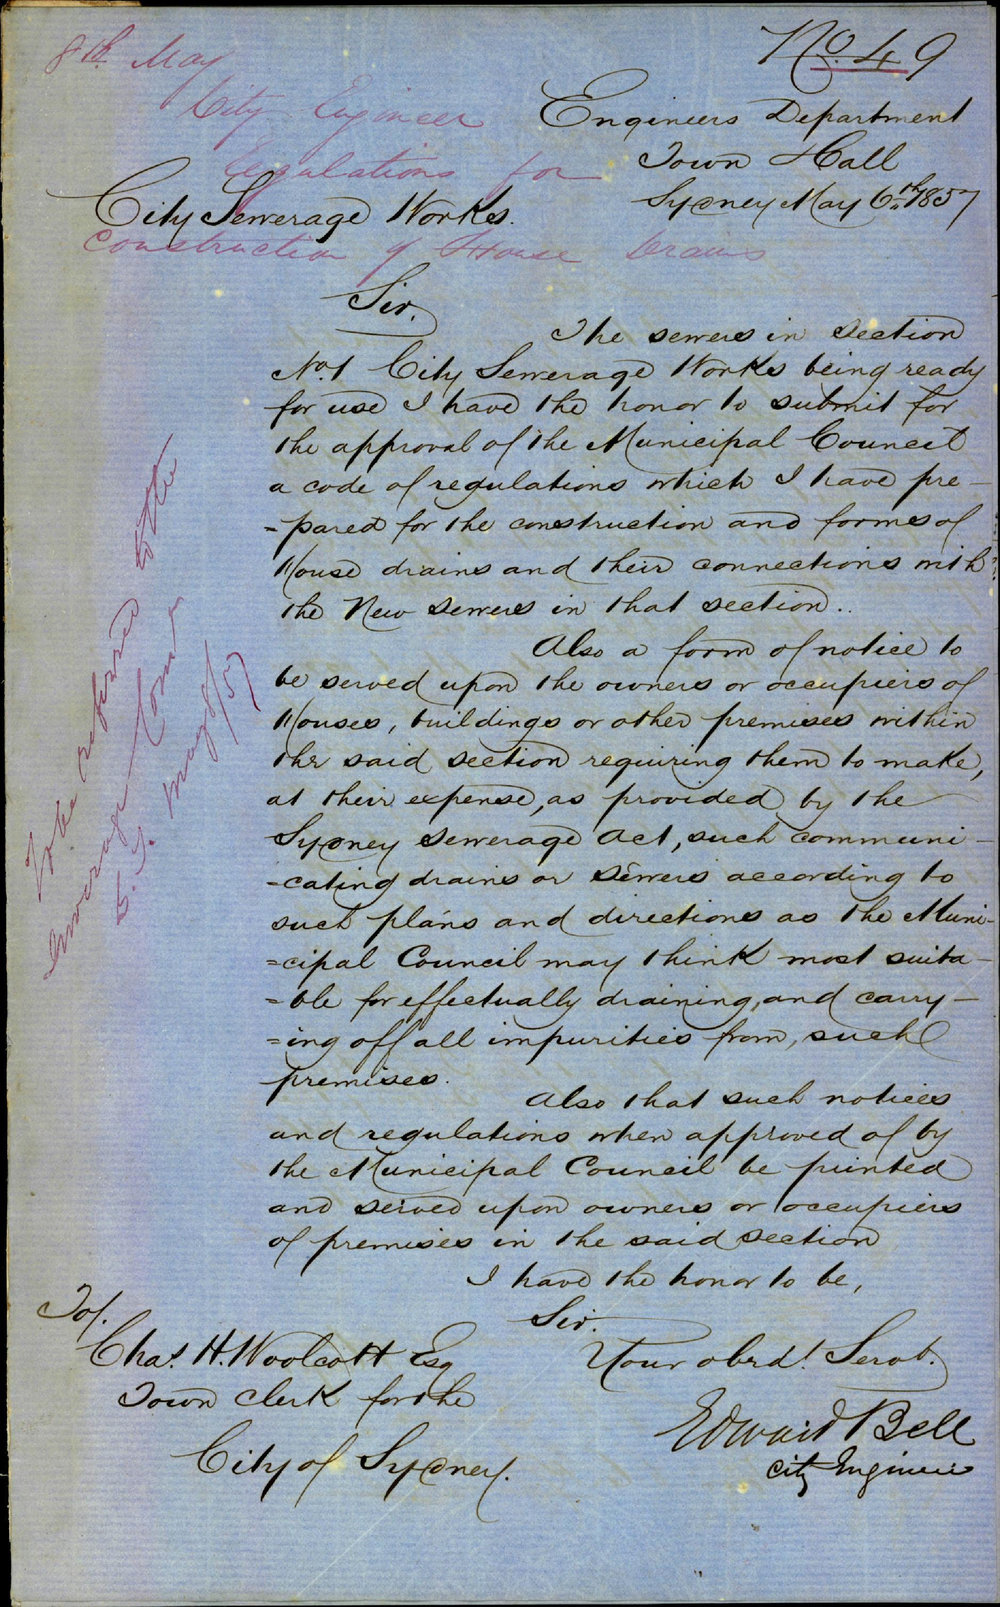 No. 49
8th May
City Engineer
Regulations for
Construction of House Drains
Engineers Department
Town Hall
Sydney May 6th 1857
City Sewerage Works.
Sir,
The sewers in Section
No. 1 City Sewerage Works being ready
for use I have the honor to submit for
the approval of the Municipal Council
a code of regulations which I have pre-
-pared for the construction and forms of
House drains and their connections with
the New Sewers in that section..
Also a form of notice to
be served upon the owners or occupiers of
Houses, buildings or other premises within
the said section requiring them to make,
at their expense, as provided by the
Sydney Sewerage Act, such communi-
-cating drains or Sewers according to
such plans and directions as the Muni-
=cipal Council may think most suita-
=ble for effectually draining, and carry-
=ing off all impurities from, such
premises.
Also that such notices
and regulations when approved of by
the Municipal Council be printed
and served upon owners or occupiers
of premises in the said section
I have the honor to be,
Sir.
Your obedt. Servt.
Edward Bell
City Engineer
To/.
Chas. H. Woolcott Esq
Town Clerk for the
City of Sydney.
To be referred to the
Sewerage Comee
May 8/57